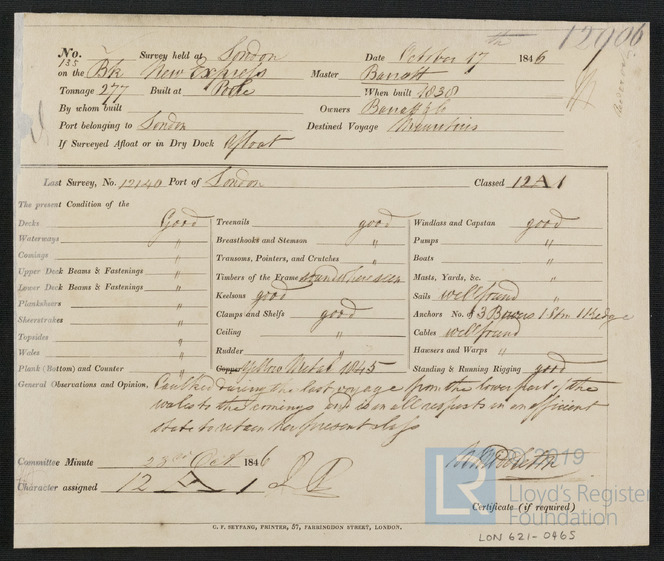 12906
No. Survey held at London Date October 17th 1846
135
on the Bk New Express Master Barratt
Tonnage 277 Built at Poole When built 1838
By whom built Owners Barratt & Co
Port belonging to London Destined Voyage Mauritius
If Surveyed Afloat or in Dry Dock Afloat
Last Survey, No. 12140 Port of London Classed 12 A 1
The present Condition of the
Decks Good Treenails good Windlass and Capstan good
Waterways " Breasthooks and Stemson " Pumps "
Comings " Transoms, Pointers, and Crutches " Boats "
Upper Deck Beams & Fastenings " Timbers of the Frame sound where seen Masts, Yards, &c. "
Lower Deck Beams & Fastenings " Keelsons good Sails well found
Planksheers " Clamps and Shelfs good Anchors No. 3 Bowers 1 Stm 1 Kedge
Sheerstrakes " Ceiling " Cables well found
Topsides " Rudder " Hawsers and Warps "
Wales " Copper Yellow Metal 1845 Standing & Running Rigging good
Plank (Bottom) and Counter "
General Observations and Opinion. Caulked during the last voyage from the lower part of the
wales to the comings and is in all respects in an efficient
state to retain her present class
Committee Minute 23rd Oct 1846
Character assigned 12 A 1
© 2019
LR Lloyd's Register
Foundation
Certificate (if required)
C. F. SEYFANG, PRINTER, 57, FARRINGDON STREET, LONDON.
LON 621-0465